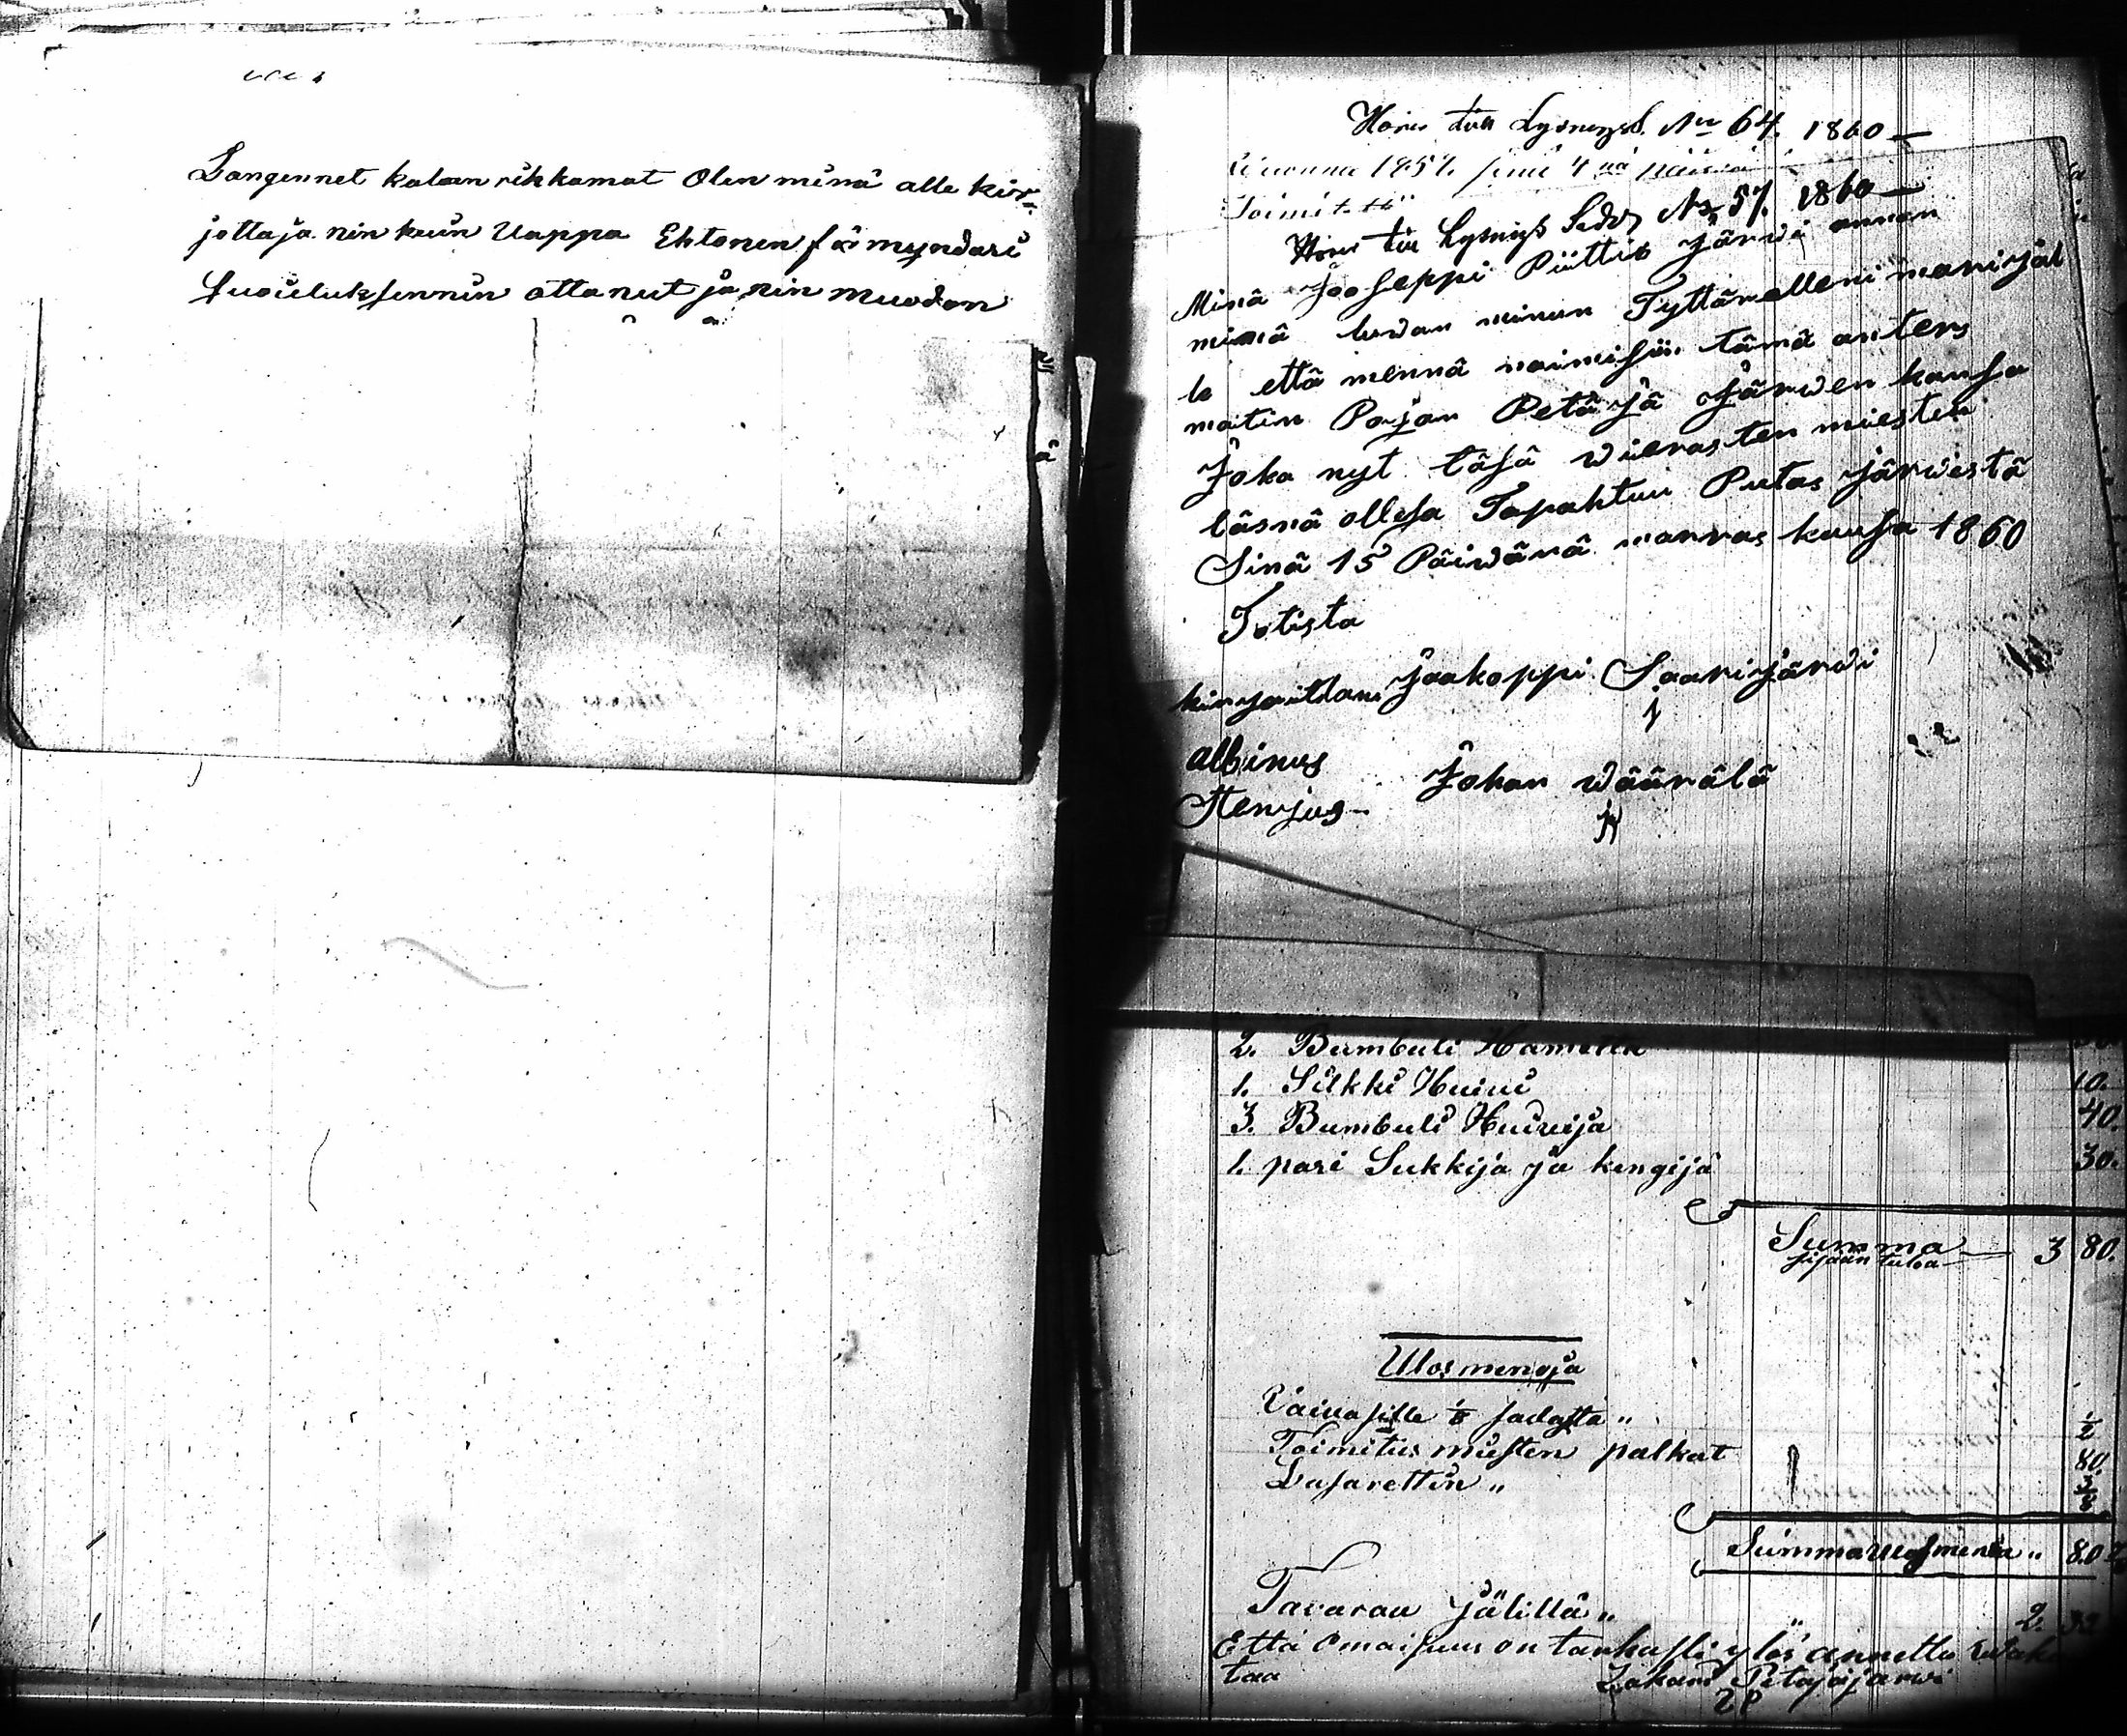 Langennet kalun rikkamat Olen minä alle kir-
jottaja nin kuin Uappa Ehtonen förmyndari
Suoieluksennin ottanut ja nin muodon
Hörer till Lysningss. No 64. 1860 —
Wuonna 1857. sinä 4 nä päiwä
Toimit
Hörer till Lysnings Sedl No 57. 1860 —
Minä Jooseppi Piittis Järwi annan
minä luwan minun Tyttärelleni marijal
le että mennä naimisiin tämä anters
matin Pojan Petäjä Järwen kansa
Joka nyt täsä wierasten miesten
läsnä ollesa Tapahtuu Putas järwestä
Sinä 15 Päiwänä marras kuusa 1860
Totista
kirjoittanu Jaakoppi Saarijärwi
albinus Johan Wäärälä
Stenjus
2. Bumbuli Hametta
1. Silkki Huiwi 10.
3. Bumbuli Huiwija 40.
1. pari Sukkija ja kengijä 30.
Summa 3 80.
sisään tuloa
Ulos menoja
Vaivasille 1/8 sadasta „ 1/2
Toimitus miesten palkat 80.
Lasarettin „
Summa ulosmenoa „ 80
Tavaraa jälillä „ 2.
Että Omaisuus on tarkasti ylös annettu
taa Zakari Petäjäjärwi